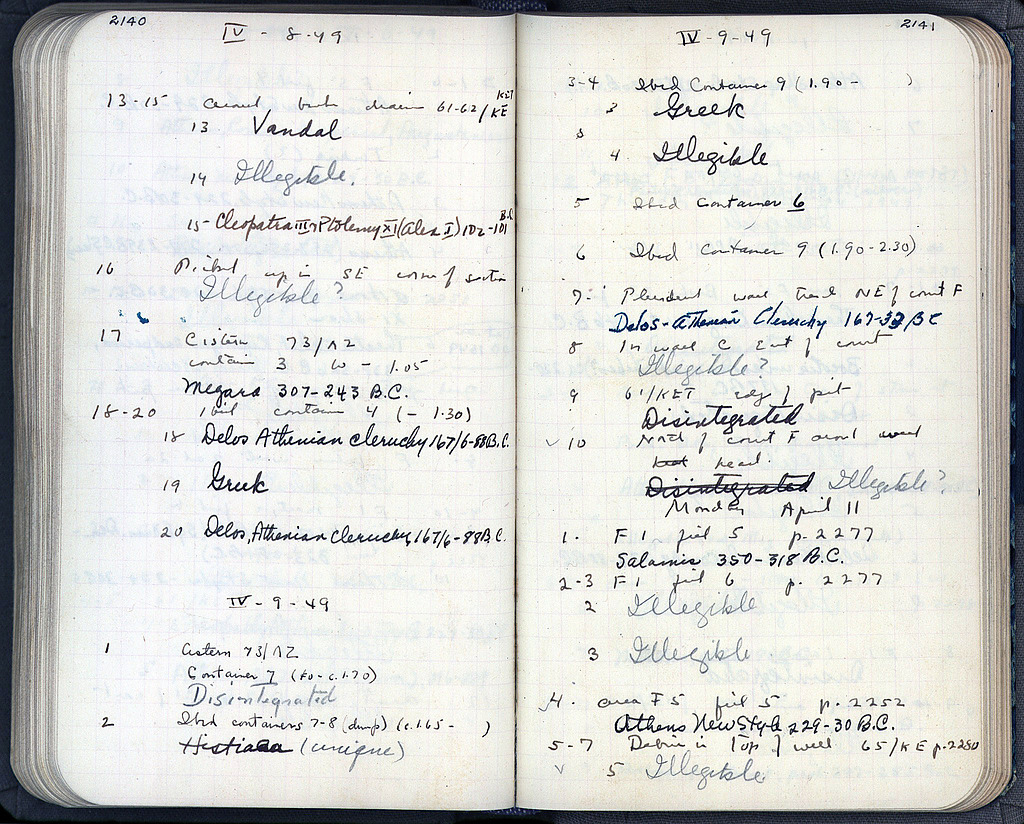 2140
IV - 8-49
13-15 drain 61-62/KE
KET
13 Vandal
14 Illegible.
15 - Cleopatra III & Ptolemy XI (Alex I) 102-101 B.C.
16 Picked up in SE corner of section
Illegible?
17 Cistern 73/ΛΖ
contain 3 to 1.05
Megara 307-243 B.C.
18-20 Ibid contain 4 (- 1.30)
18 Delos Athenian cleruchy 167/6-88 B.C.
19 Greek
20 Delos, Athenian Cleruchy, 167/6-88 B.C.
IV - 9-49
1 Cistern 73/ΛΖ
Container 7 (to - c.1.70)
Disintegrated
2 Ibid containers 7-8 (dump) (c.1.65 - )
Histiaea (unique)
2141
IV-9-49
3-4 Ibid Container 9 (1.90- )
3 Greek
3
4. Illegible
5 Ibid Container 6
6 Ibid Container 9 (1.90-2.30)
7 wall NE of court F
Delos-Athenian Cleruchy 167-33/BC
8 In wall C East of court
Illegible?
9 61/KET edge of pit
Disintegrated
✓ 10 NNE of court F
head.
Disintegrated Illegible?
Monday April 11
1. F 1 fill 5 p. 2277
Salamis 350-318 B.C.
2-3 F 1 fill 6 p. 2277
2 Illegible
3 Illegible
4. area F 5 fill 5 p. 2252
Athens New Style 229-30 B.C.
5-7 Debris in Top of well 65/KE p.2280
✓ 5 Illegible.